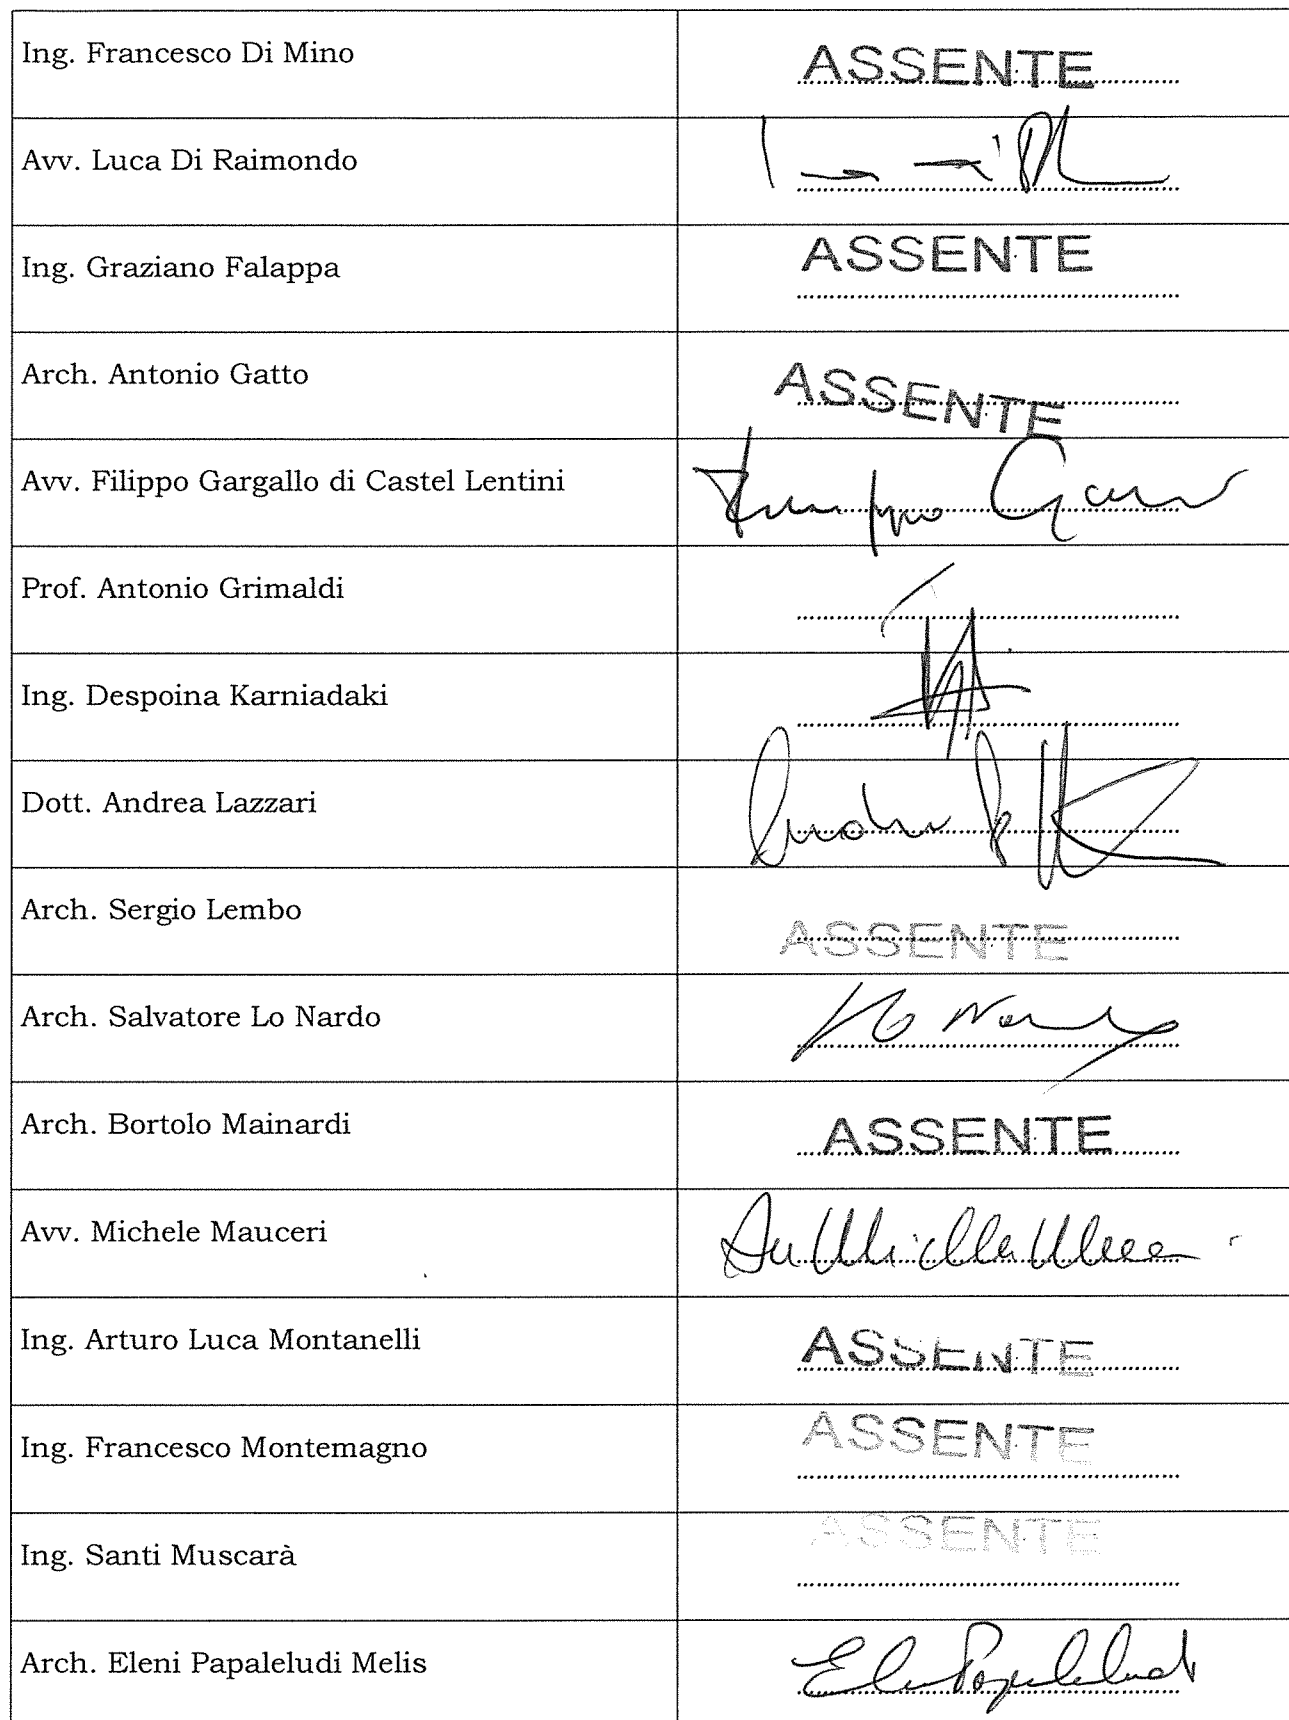 Ing. Francesco Di Mino ASSENTE
Avv. Luca Di Raimondo
Ing. Graziano Falappa ASSENTE
Arch. Antonio Gatto ASSENTE
Avv. Filippo Gargallo di Castel Lentini
Prof. Antonio Grimaldi
Ing. Despoina Karniadaki
Dott. Andrea Lazzari
Arch. Sergio Lembo ASSENTE
Arch. Salvatore Lo Nardo Lo Nardo
Arch. Bortolo Mainardi ASSENTE
Avv. Michele Mauceri
Ing. Arturo Luca Montanelli ASSENTE
Ing. Francesco Montemagno ASSENTE
Ing. Santi Muscarà ASSENTE
Arch. Eleni Papaleludi Melis